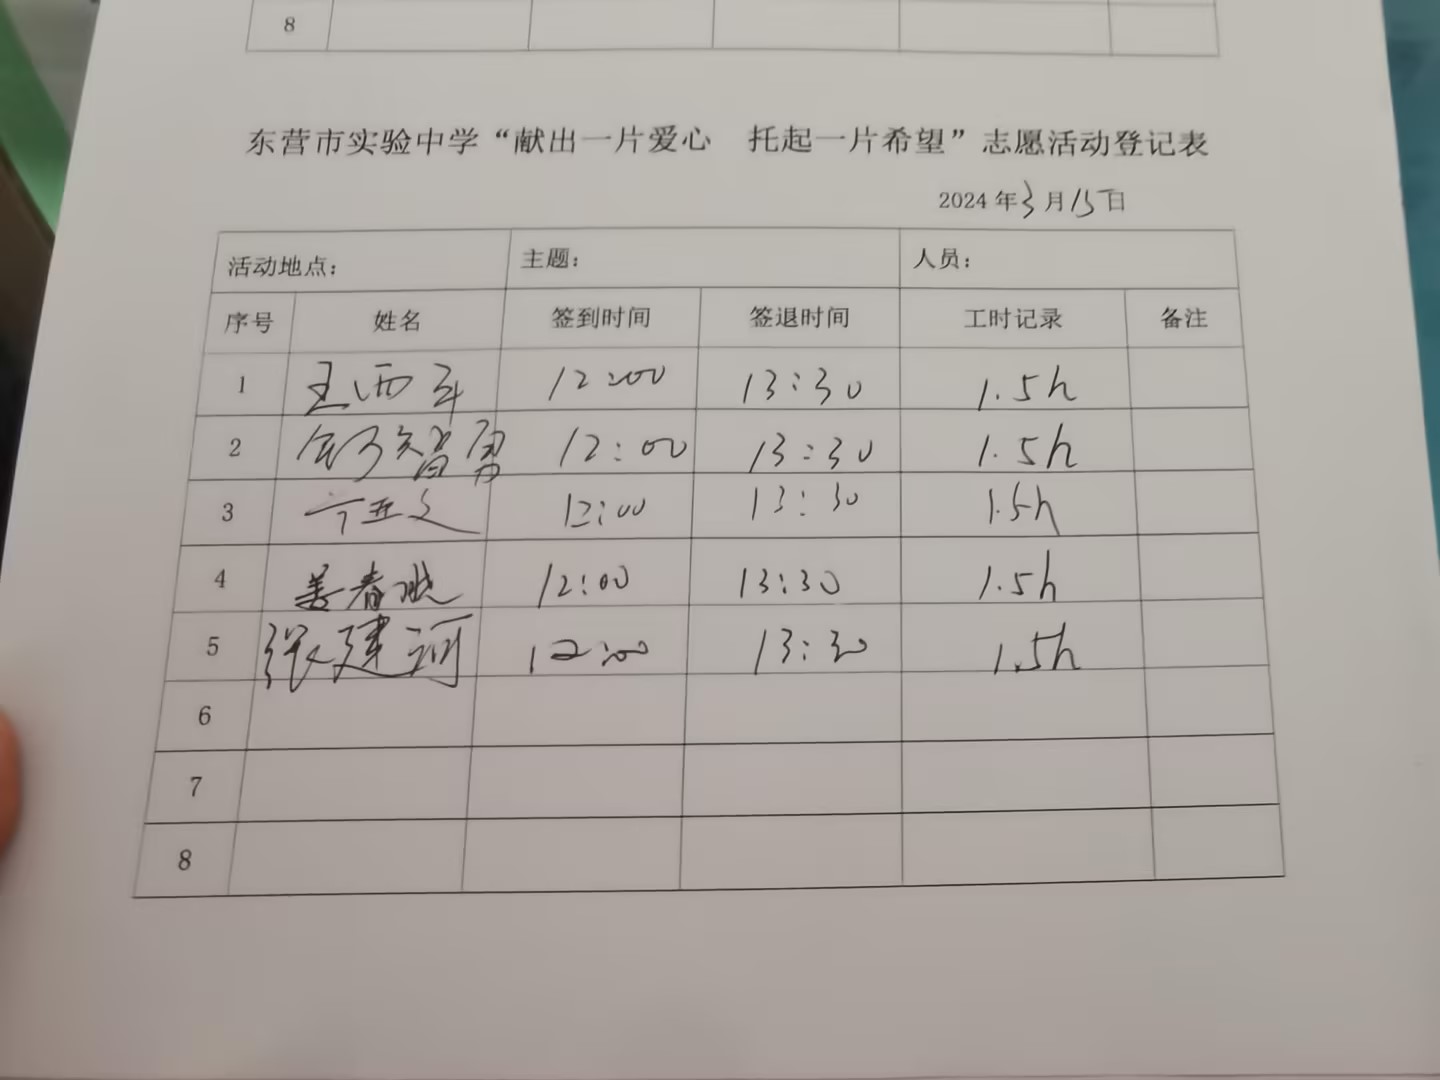 8
东营市实验中学“献出一片爱心 托起一片希望”志愿活动登记表
2024年3月15日
活动地点: 主题: 人员:
序号 姓名 签到时间 签退时间 工时记录 备注
1 12:00 13:30 1.5h
2 12:00 13:30 1.5h
3 12:00 13:30 1.5h
4 姜春晓 12:00 13:30 1.5h
5 张建河 12:00 13:30 1.5h
6
7
8